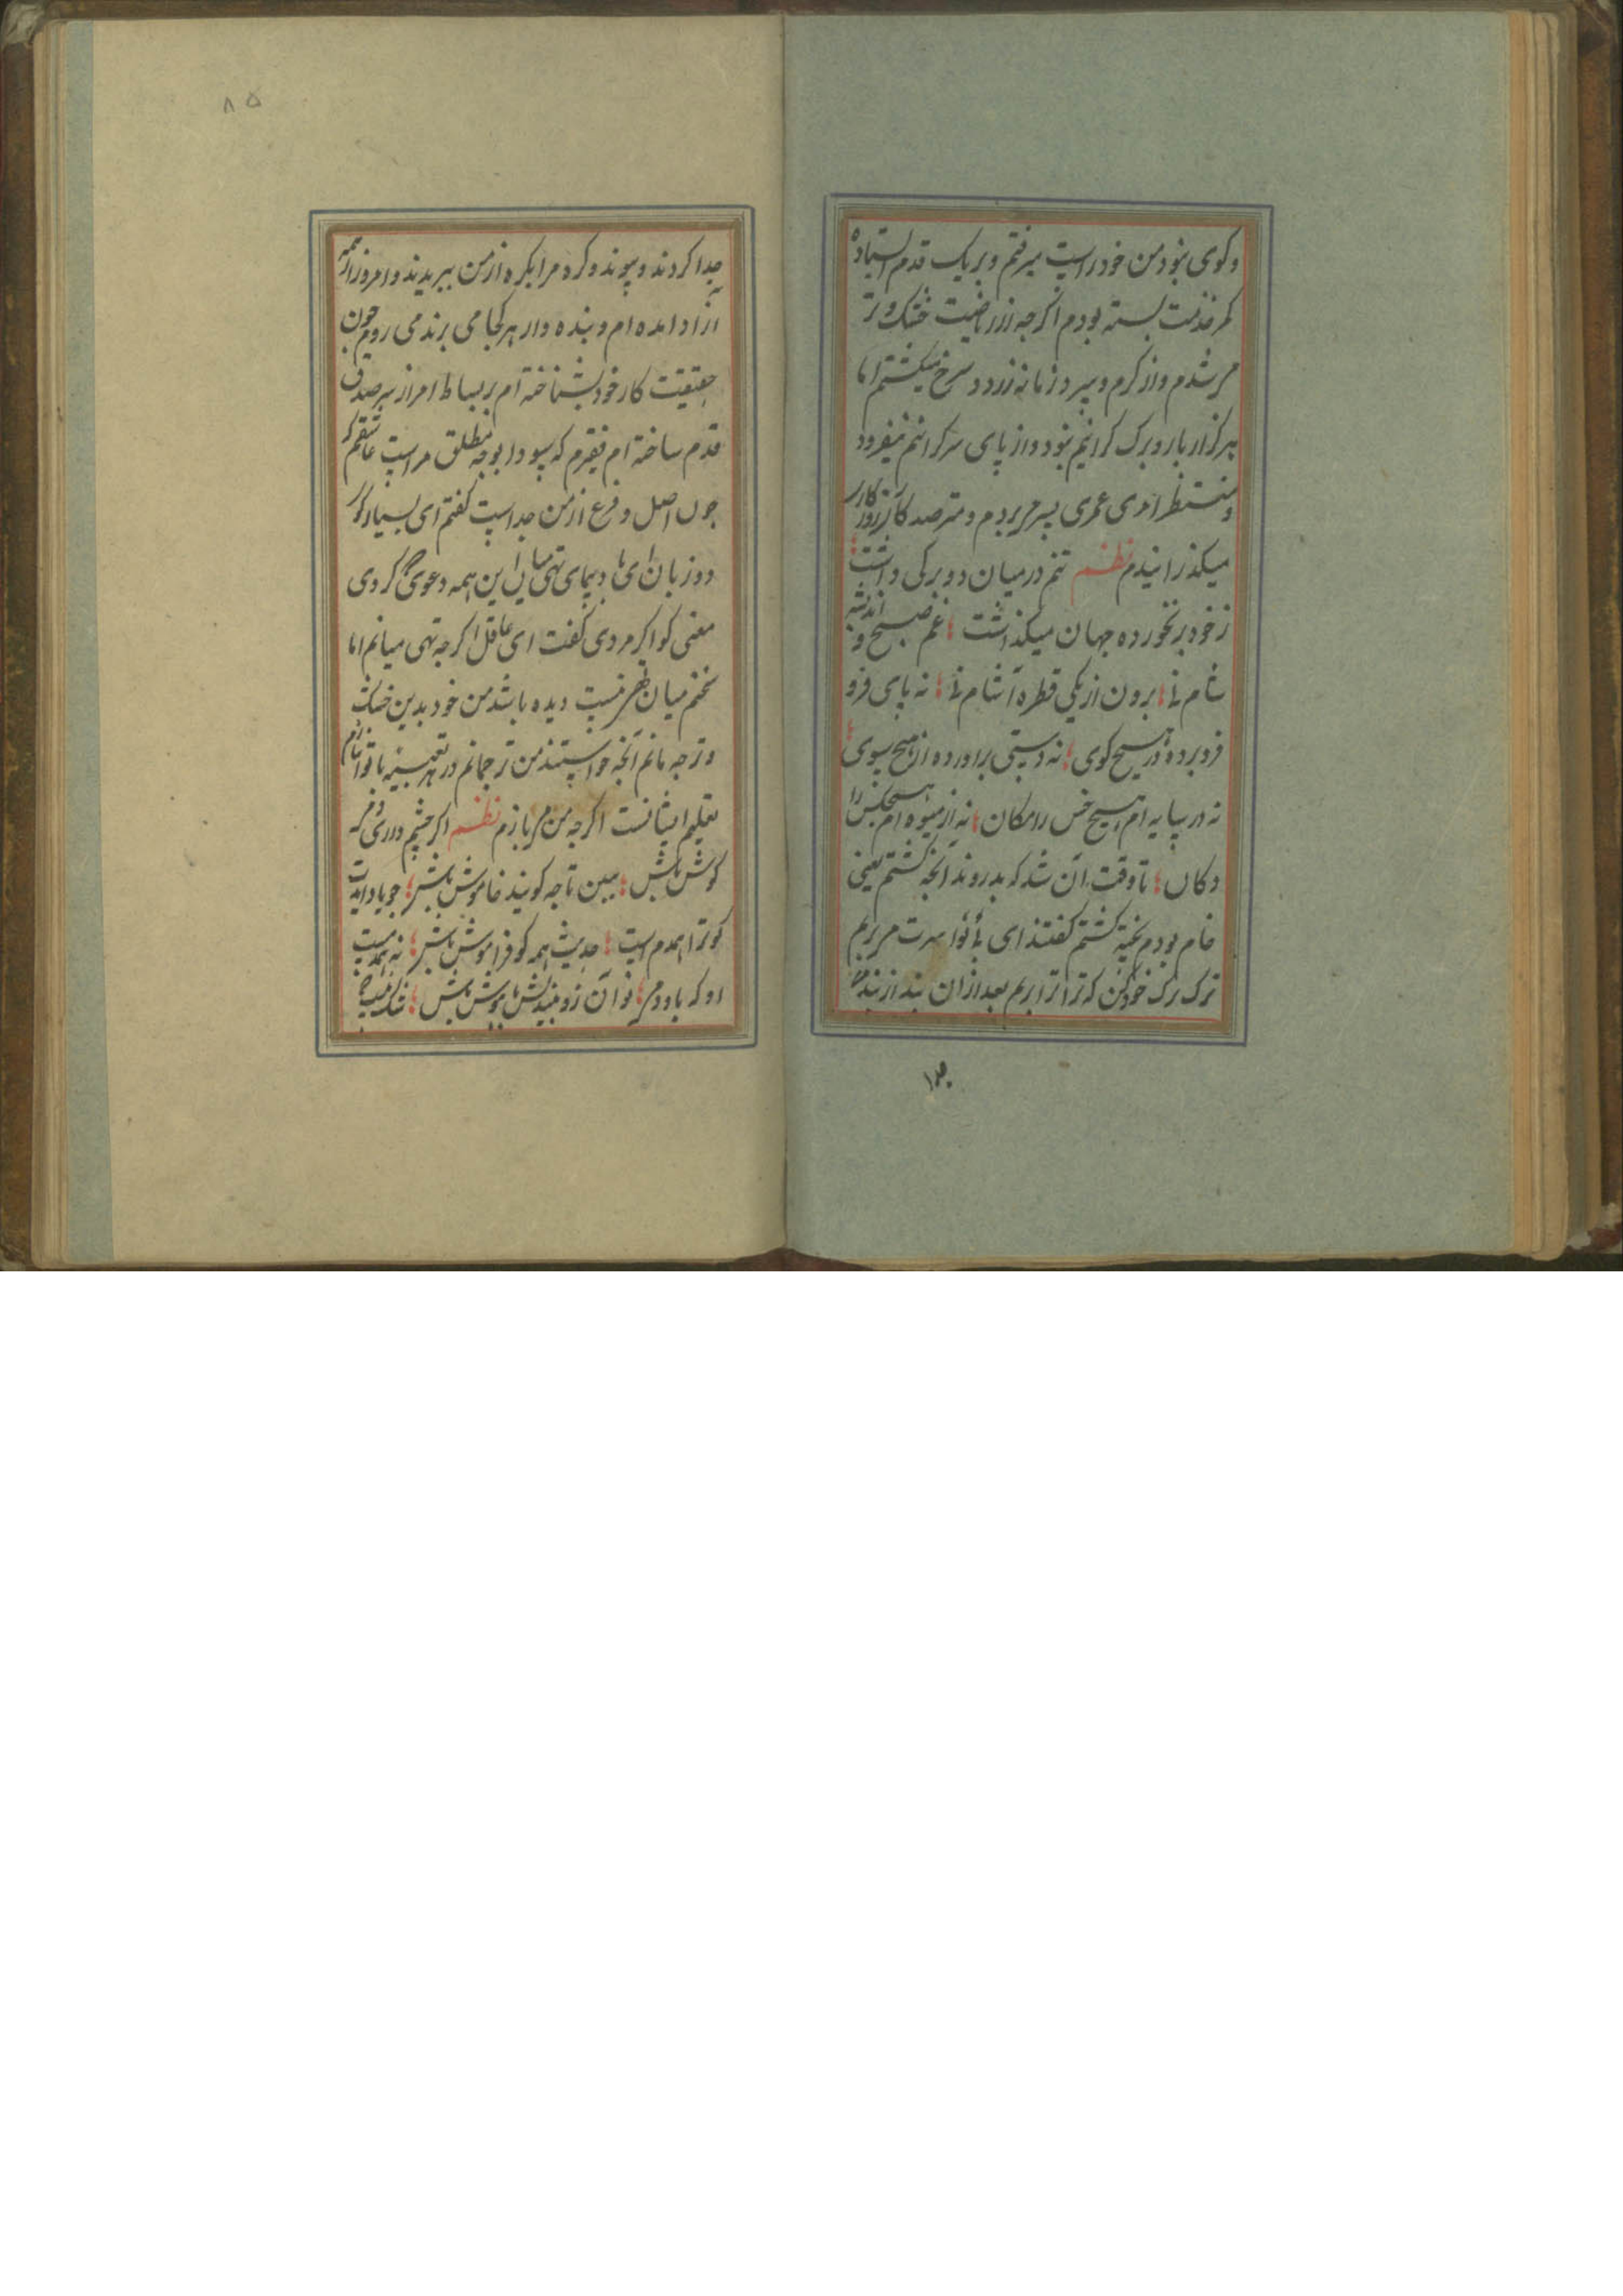 و کوی نبود من خود راست میرفتم و بر یک قدم استاده
کمر خدمت بسته بودم اکرچه از ریاضت خشک و تر
می شدم و از کرم و سرد زمانه زرد و سرخ میکشتم اما
هرکز از بار و برک کرانیم نبود و از پای سرکرانیم نیفزود
و منتظر امری عمری بسر می بردم و مترصد کار روزکار
میکذرانیدم نظم تنم در میان دو برکی داشت
ز خود بر نخورده جهان میکذاشت غم صبح و اندیشه
شام نی برون از یکی قطره آشام نی نه پای فرو
فرو برده در هیچ کوی نه دستی براورده از هیچ سوی
نه در سایه ام هیچ خس را مکان نه از میوه ام هیچکس را
دکان تا وقت آن شد که بدروند آنچه کشتم یعنی
خام بودم پخته کشتم کفتند ای بی نوا سرت می بریم
ترک رک خود کن که ترا تر اریم بعد از ان بند از بندم
جدا
۸۵
جدا کردند و پیوند و کره مرا یکره از من ببریدند و امروز از همه
ازاد امده ام و بنده وار هر کجا می برند می روم چون
حقیقت کار خود بشناخته ام بر بساط امر از سر صدق
قدم ساخته ام فقیرم که سودا بوجه مطلق مراست عاشقم که
چون اصل و فرع از من جداست کفتم ای بسیار کوی
دو زبان ای باد پیمای تهی میان این همه دعوی کردی
معنی کو اکر مردی کفت ای عاقل اکرچه تهی میانم اما
سخنم میان تهی نیست دیده باشد من خود بدین خشک
و تر چه مانم آنچه خواستند من ترجمانم در هر تعبیه با نوا سازم
تعلیم ایشانست اکرچه من می بازم نظم اکر چشم داری و مر
کوش باش ببین تا چه کویند خاموش باش چو یاد ایدت
کو ترا همدم است حدیث همه کو فراموش باش نه همدمیست
او که با او دمی تو آن زو نیندیش با هوش باش